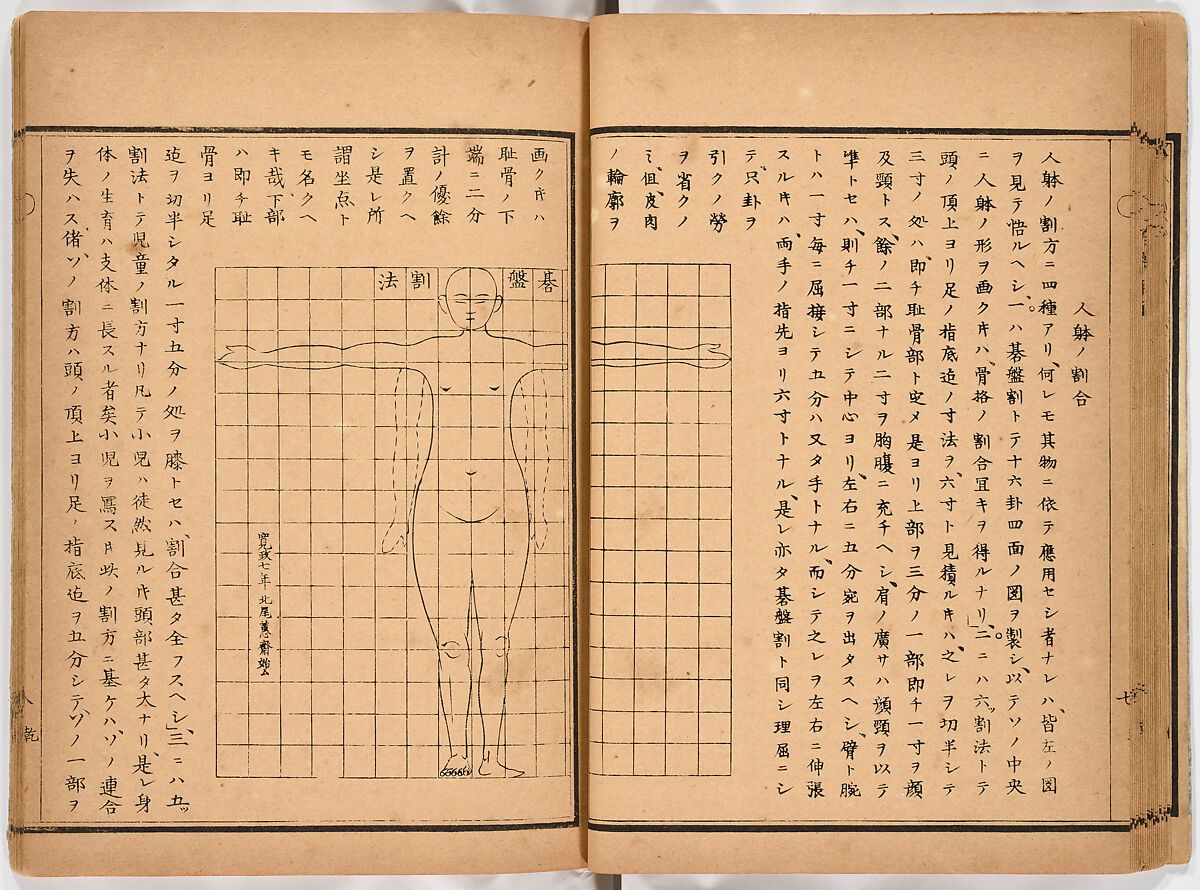 人躰ノ割合
人躰ノ割方ニ四種アリ、何レモ其物ニ依テ應用セシ者ナレハ、皆左ノ図
ヲ見テ悟ルヘシ。一ハ碁盤割トテ十六卦四面ノ図ヲ製シ、以テソノ中央
ニ人躰ノ形ヲ画クキハ、骨格ノ割合冝キヲ得ルナリ」。二ニハ六ッ割法トテ
頭ノ頂上ヨリ足ノ指底迠ノ寸法ヲ、六寸ト見積ルキハ、之レヲ切半シテ
三寸ノ処ハ、即チ耻骨部ト定メ是ヨリ上部ヲ三分ノ一部即チ一寸ヲ顔
及頸トス、餘ノ二部ナル二寸ヲ胸腹ニ充チヘシ、肩ノ廣サハ顔頸ヲ以テ
準トセハ、則チ一寸ニシテ中心ヨリ、左右ニ五分宛ヲ出タスヘシ、臂ト腕
トハ一寸毎ニ屈接シテ五分ハ又タ手トナル、而シテ之レヲ左右ニ伸張
スルキハ、両手ノ指先ヨリ六寸トナル、是レ亦タ碁盤割ト同シ理屈ニシ
テ、只卦ヲ
引クノ勞
ヲ省クノ
ミ、但、皮肉
ノ輪廓ヲ
画クキハ
耻骨ノ下
端ニ二分
計ノ優餘
ヲ置クヘ
シ是レ所
謂坐点ト
モ名クヘ
キ哉、下部
ハ即チ耻
骨ヨリ足
迠ヲ切半シタル一寸五分ノ処ヲ膝トセハ、割合甚タ全フスヘシ」、三ニハ五ッ
割法トテ児童ノ割方ナリ凡テ小児ハ徒然見ルキ頭部甚タ大ナリ、是レ身
体ノ生育ハ支体ニ長スル者矣小児ヲ寫スキ此ノ割方ニ基ケハ、ソノ連合
ヲ失ハス、偖、ソノ割方ハ頭ノ頂上ヨリ足ノ指底迠ヲ五分シテ、ソノ一部ヲ
碁盤割法
寛政七年 北尾蕙齋始ム
七
乾